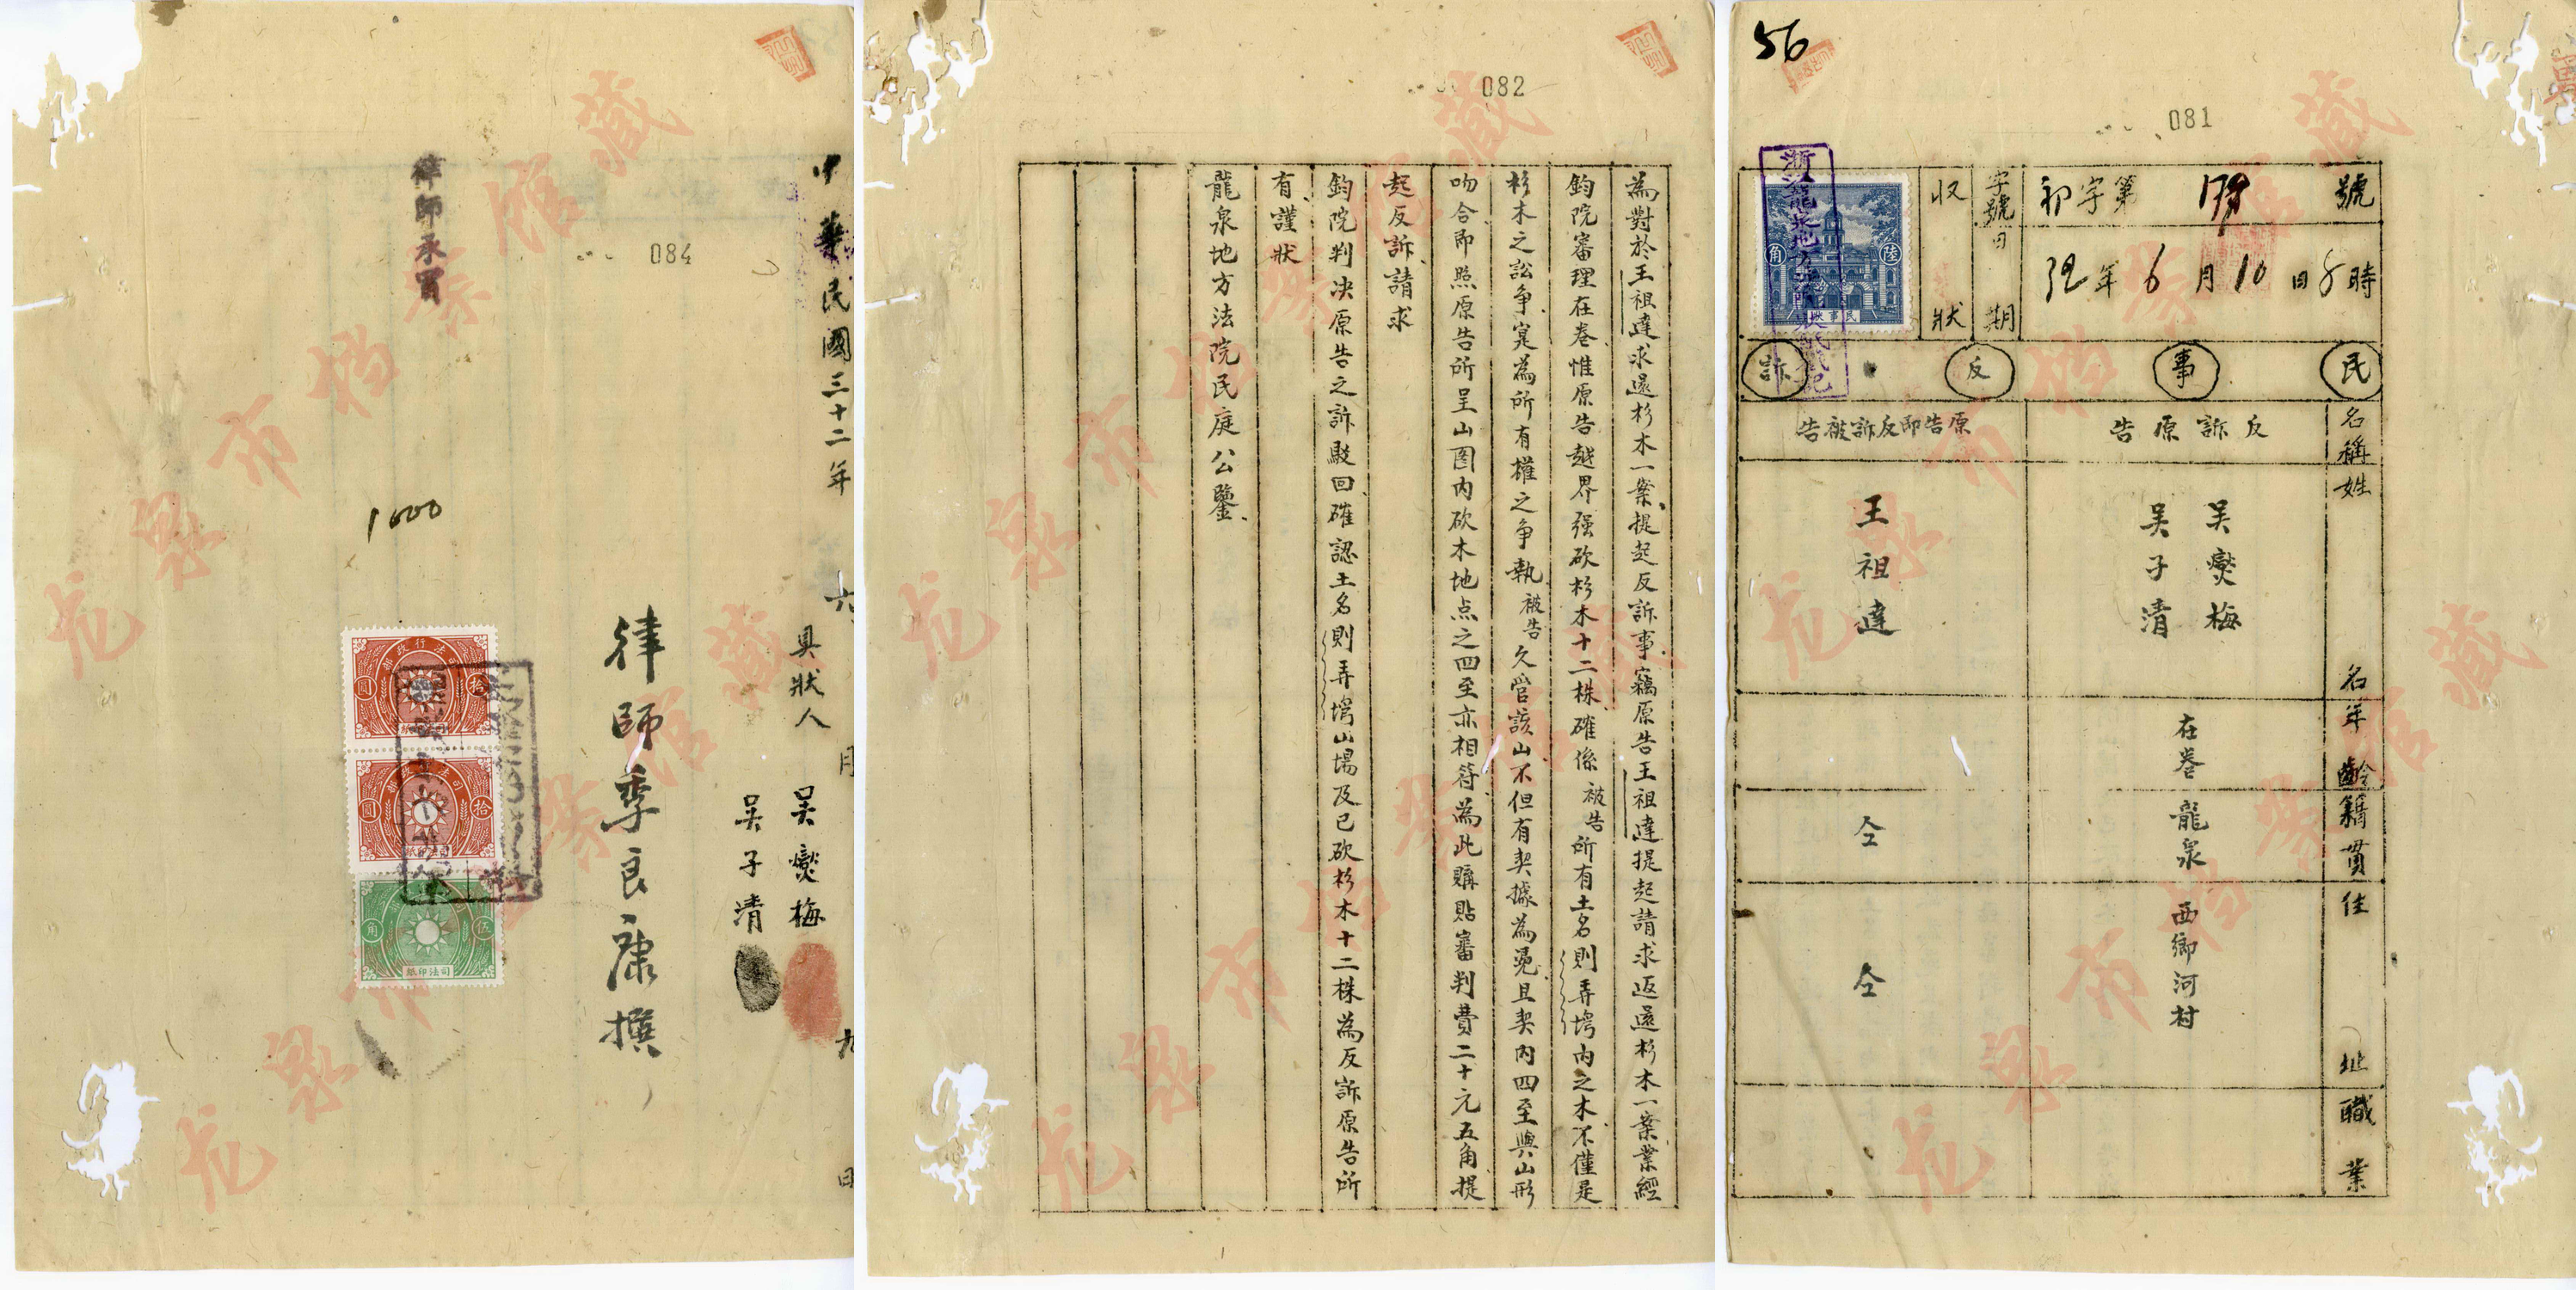 56
081
號
初字第
時
32年6月10日
字號日期
收狀
民事反訴
名稱
反訴原告
原告即反訴被告
姓名
吴爕梅
吴子清
王祖達
年齡
在卷
籍貫
龍泉
仝
住址
西鄉河村
仝
職業
082
為對於王祖達求還杉木一案提起反訴事竊原告王祖達提起請求返還杉木一案業經
鈞院審理在卷惟原告越界强砍杉木十二株確係被告所有土名則弄塆内之木不僅是
杉木之訟争寔為所有權之争執被告久管該山不但有契據為憑且契内四至與山形
吻合即照原告所呈山圖内砍木地点之四至亦相符為此購貼審判費二十元五角提
起反訴請求
鈞院判决原告之訴駁回確認土名則弄塆山場及已砍杉木十二株為反訴原告所
有謹狀
龍泉地方法院民庭公鑒
084
中華民國三十二年六月九日
具狀人 吴爕梅
吴子清
律師季良康撰
1000
司法印紙